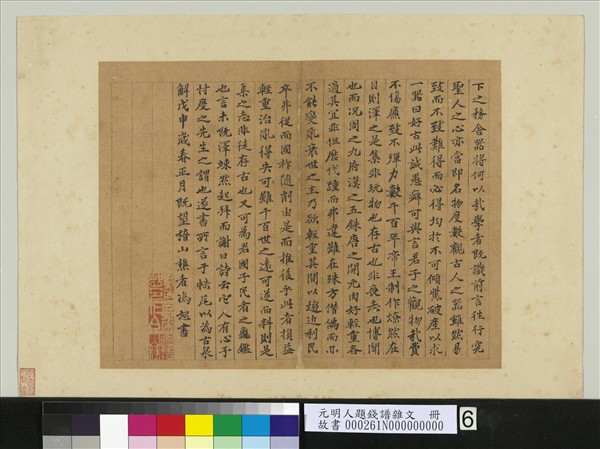 下之務舍器將何以哉學者既識前言往行究
聖人之心亦當即名物度數觀古人之器雖然易
致而不致難得而必得均於不可傾貲破產以求
一器曰好古此誠愚癖可與言君子之觀物哉費
不傷廉致不殫力數千百年帝王制作燎然在
目則澤之是集非玩物也存古也非喪志也博聞
也而況周之九府漢之五銖唐之開元肉好輕重各
適其宜非但歷代踵而弗違雖在殊方僭偽而亦
不能變氣衰世之主乃欲輕重其間以趨近利民
卒弗從而國祚隨削由是而推後乎此者損益
輕重治亂得失可雖千百世之遠可逆而料則是
集之志非徒存古也又可為君國子民者之龜鑑
也言未既澤竦然起拜而謝曰詩云它人有心予
忖度之先生之謂也遂書所言于帙尾以為古泉
解戊申歲春正月既望稽山樵者馮 書
元明人題錢譜雜文 冊
故書 000261N000000000
6